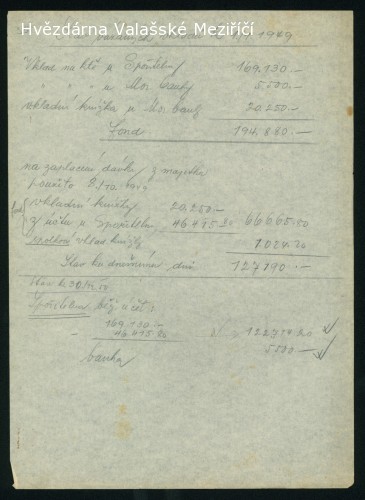 Hvězdárna Valašské Meziříčí
1949
Vklad na ktě u Spořitelny 169.130.-
" " " u Mor. banky 5.500.-
vkladní knížka u Mor. banky 20.250.-
Fond 194.880.-
na zaplacení dávky z majetku
použito
vkladní knížky 20.250.-
z účtu u Spořitelny 46.415.20 66.665.20
vklad. knížky 1.024.20
Stav ku dnešnímu dni 127190.-
Stav k 30/
Spořitelna běž. účet:
169.130.-
- 46.415.20 122714.20
banka 5500.-